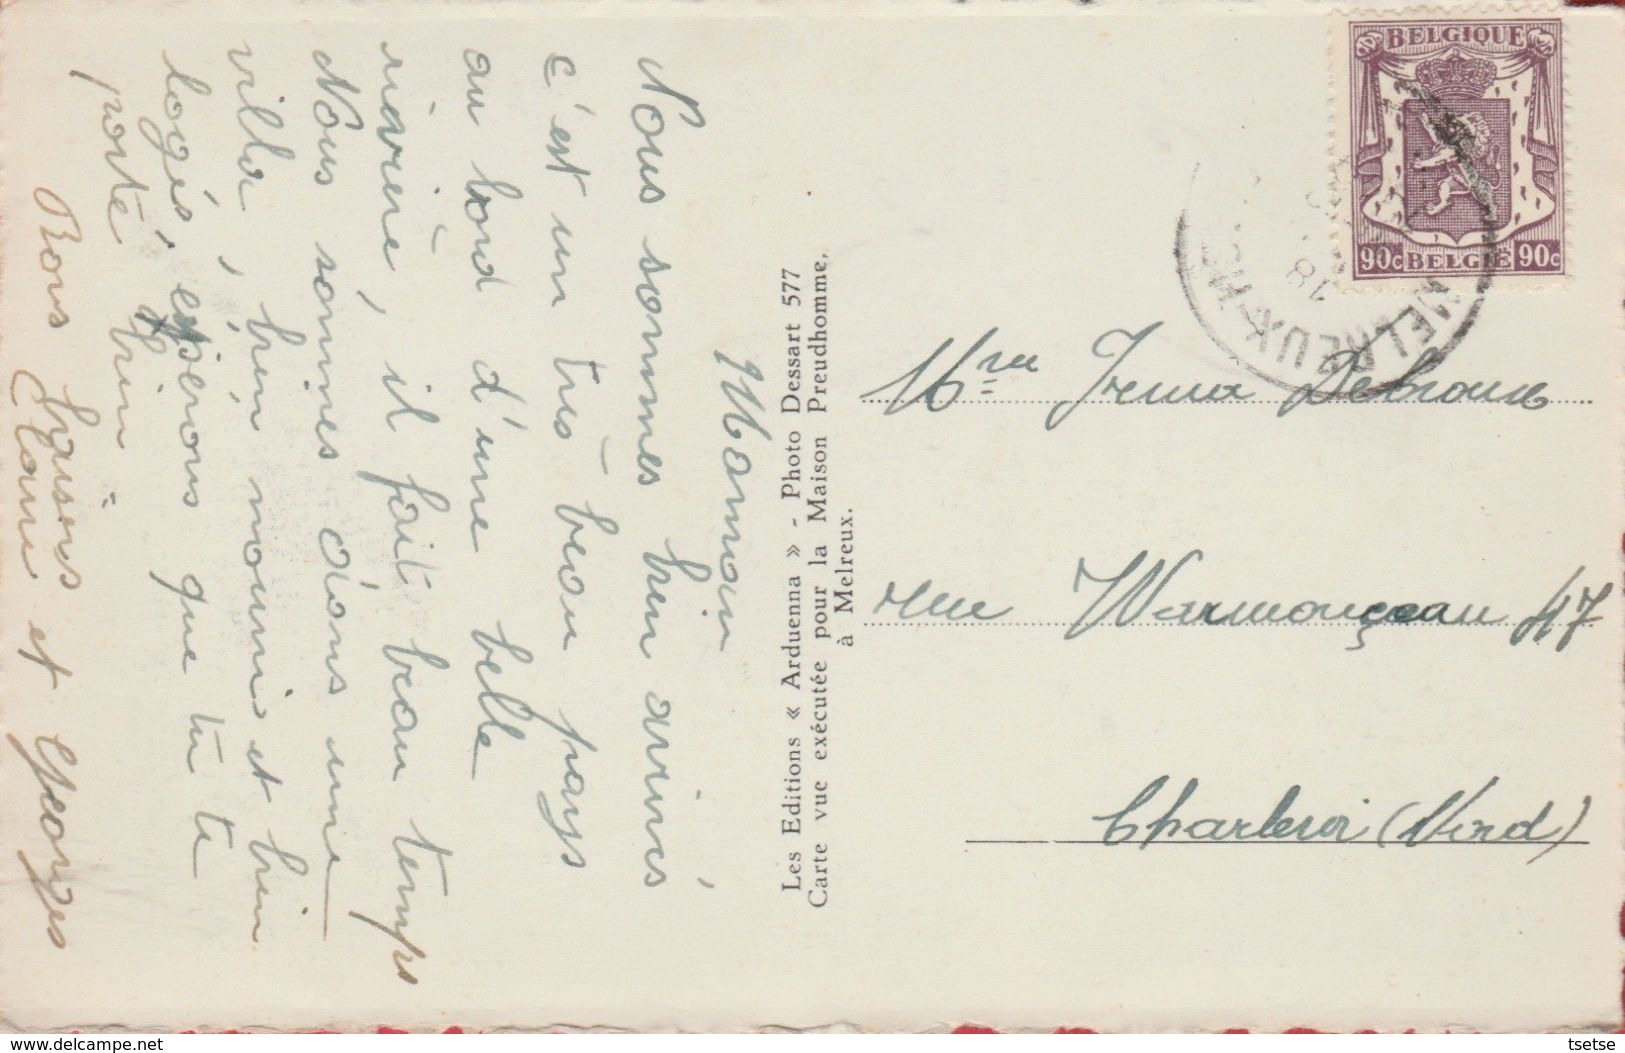 Maman
Nous sommes bien arrivés
c'est un très beau pays
au bord d'une belle
rivière, il fait beau temps
Nous sommes dans une
villa, bien nourri et bien
logés, espérons que tu te
porte bien
Bons baisers
Claire et Georges
Les Editions « Arduenna » - Photo Dessart 577
Carte vue exécutée pour la Maison Preudhomme,
à Melreux.
BELGIQUE
90c BELGIË 90c
MELREUX-H
18
Mme Irma Debroux
rue Warmonceau 47
Charleroi (Nord)
delcampe.net
tsetse